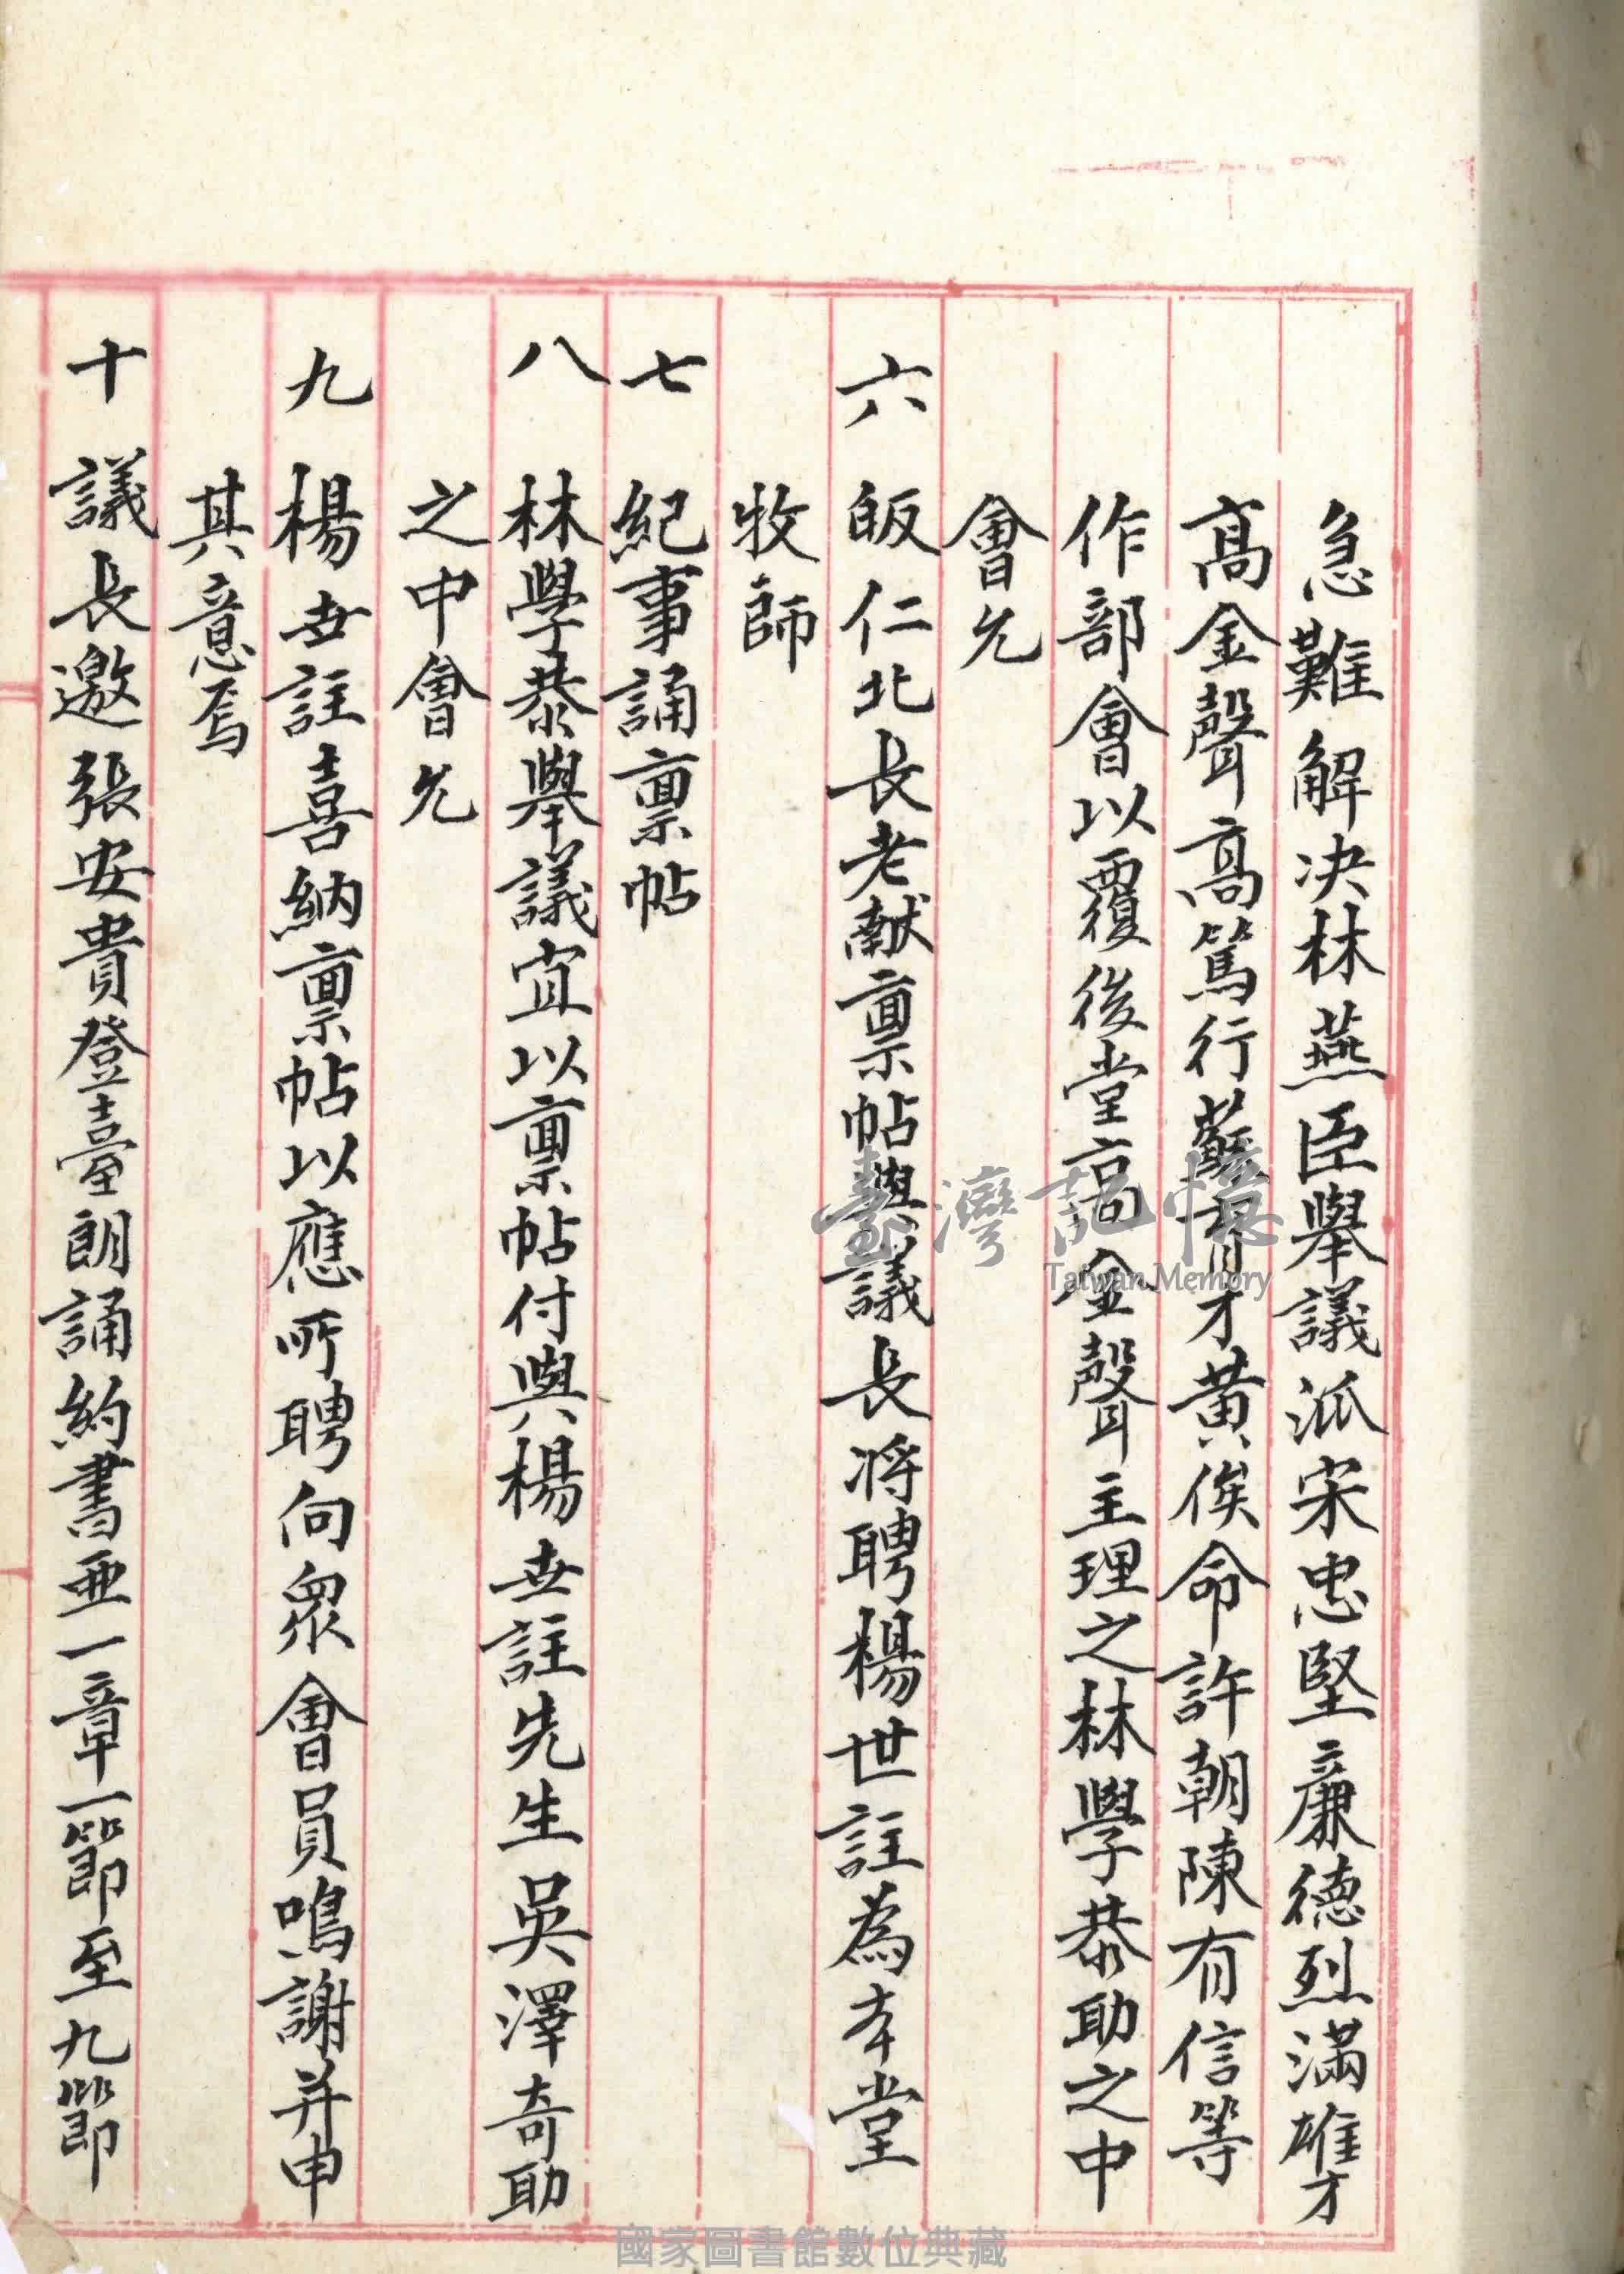 急難解決林燕臣舉議派宋忠堅廉德烈滿雄才
高金聲高篤行蘇育才黃俟命許朝陳有信等
作部會以覆後堂高金聲主理之林學恭助之中
會允
六 皈仁北長老献稟帖與議長將聘楊世註為本堂
牧師
七 紀事誦稟帖
八 林學恭舉議宜以稟帖付與楊世註先生吳澤奇助
之中會允
九 楊世註喜納稟帖以應所聘向眾會員鳴謝并申
其意焉
十 議長邀張安貴登臺朗誦約書亜一章一節至九節
臺灣記憶
Taiwan Memory
國家圖書館數位典藏